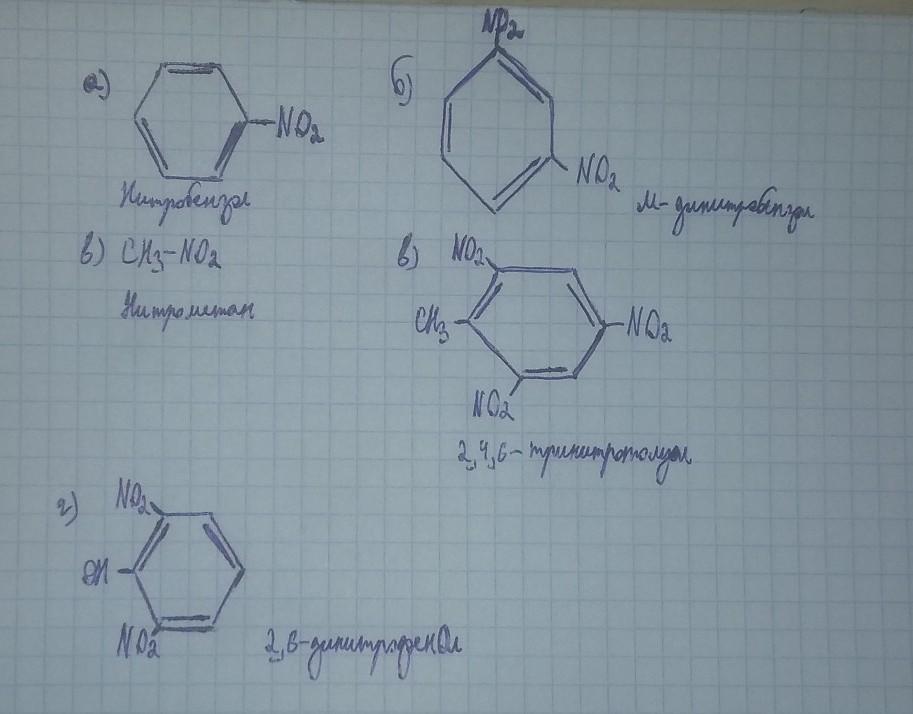 а)
NO2
Нитробензол
б)
NO2
NO2
м-динитробензол
в) CH3-NO2
Нитрометан
в)
NO2
CH3
NO2
NO2
2,4,6-тринитротолуол
г)
NO2
OH
NO2
2,6-динитрофенол